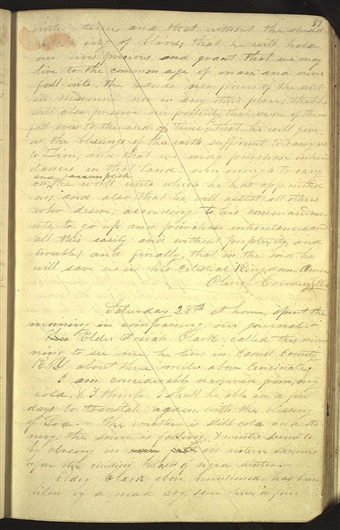 57
and that without the shedding
ing of blood; that he will hold
our lives precious, and grant that we may
live to the common age of man and never
fall into the hands nor power of the mob
in Missouri nor in any other place; that he
will also preserve our posterity that none of them
fall even to the end of time; that he will give
us the blessings of the earth sufficient to carry us
to Zion, and that we may purchase inheri-
tances in that land even enough to carry
on and accomplish the work unto which he has appointed
us; and also that he will assist all others
who desire, according to his commandme-
nts, to go up and purchase inheritances and
all this easily and without perplexity and
trouble; and finally, that in the end he
will save us in his Celestial Kingdom. Amen.
Oliver Cowdery
Saturday 28th at home, spent the
morning in our journal
Elder Josiah Clark called this mor-
ning to see me, he lives in Camel County,
K.Y. about three miles above Cincinate.
I am considerably recovered from my
cold, & I think I shall be able in a few
days to translate again, with the blessing
of God. The weather is still cold and sto-
rmy, the snow is falling, & winter seems to be
closing in all nature shrinks
before the chilling blast of rigid winter.
Elder Clark above mentioned, has been
biten by a mad dog, some